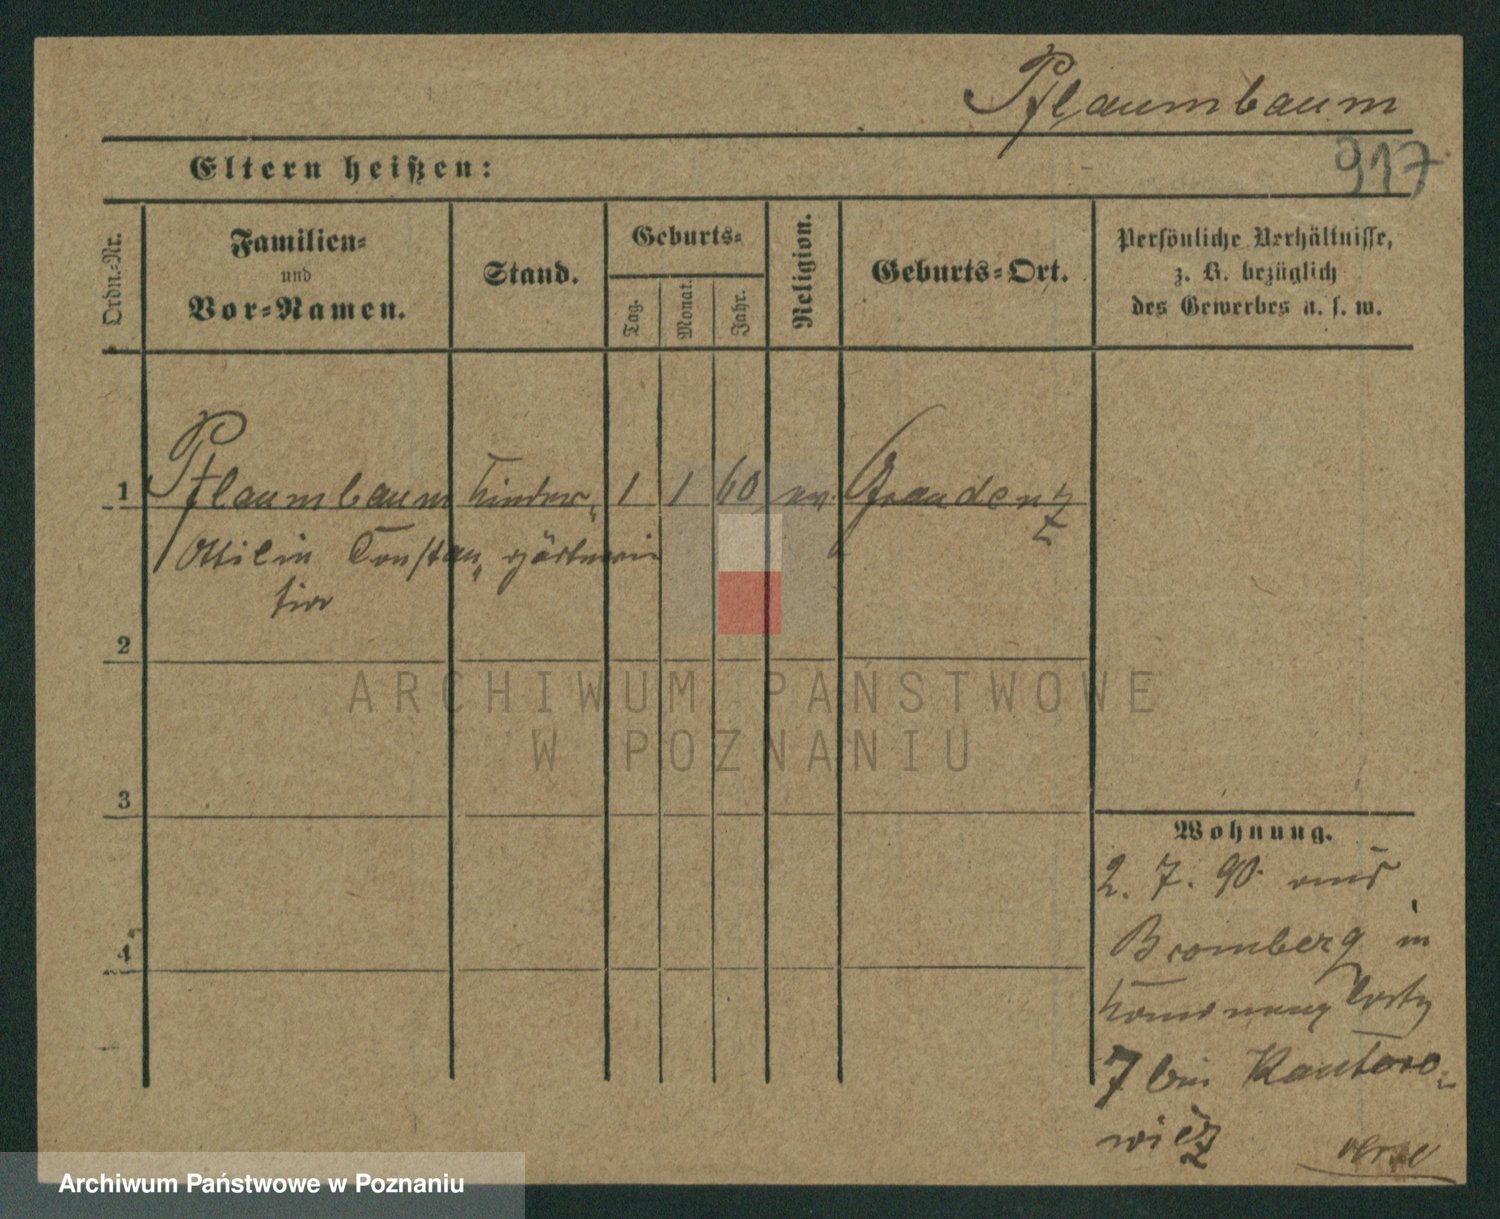 Pflaumbaum
917
Eltern heißen:
Ordn.-Nr.
Familien-
und
Vor-Namen.
Stand.
Geburts-
Tag.
Monat.
Jahr.
Religion.
Geburts-Ort.
Persönliche Verhältnisse,
z. B. bezüglich
des Gewerbes u. s. w.
1 Pflaumbaum Kinder- 1 1 60 ev. Graudenz
Ottilie Constan- gärtnerin
2
3
4
Wohnung.
2. 7. 90 aus
Bromberg in
7 bei Kantoro-
wicz
ARCHIWUM PAŃSTWOWE
W POZNANIU
Archiwum Państwowe w Poznaniu